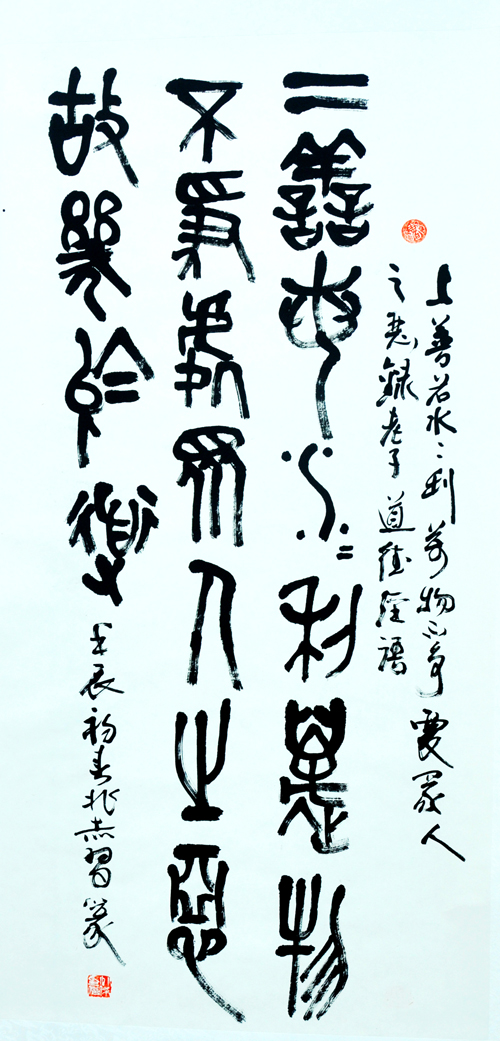 上善若水〻利萬物不爭處眾人
之惡錄老子道德經語
上善若水〻利萬物
不爭處眾人之惡
故幾於道
壬辰初春兆習篆